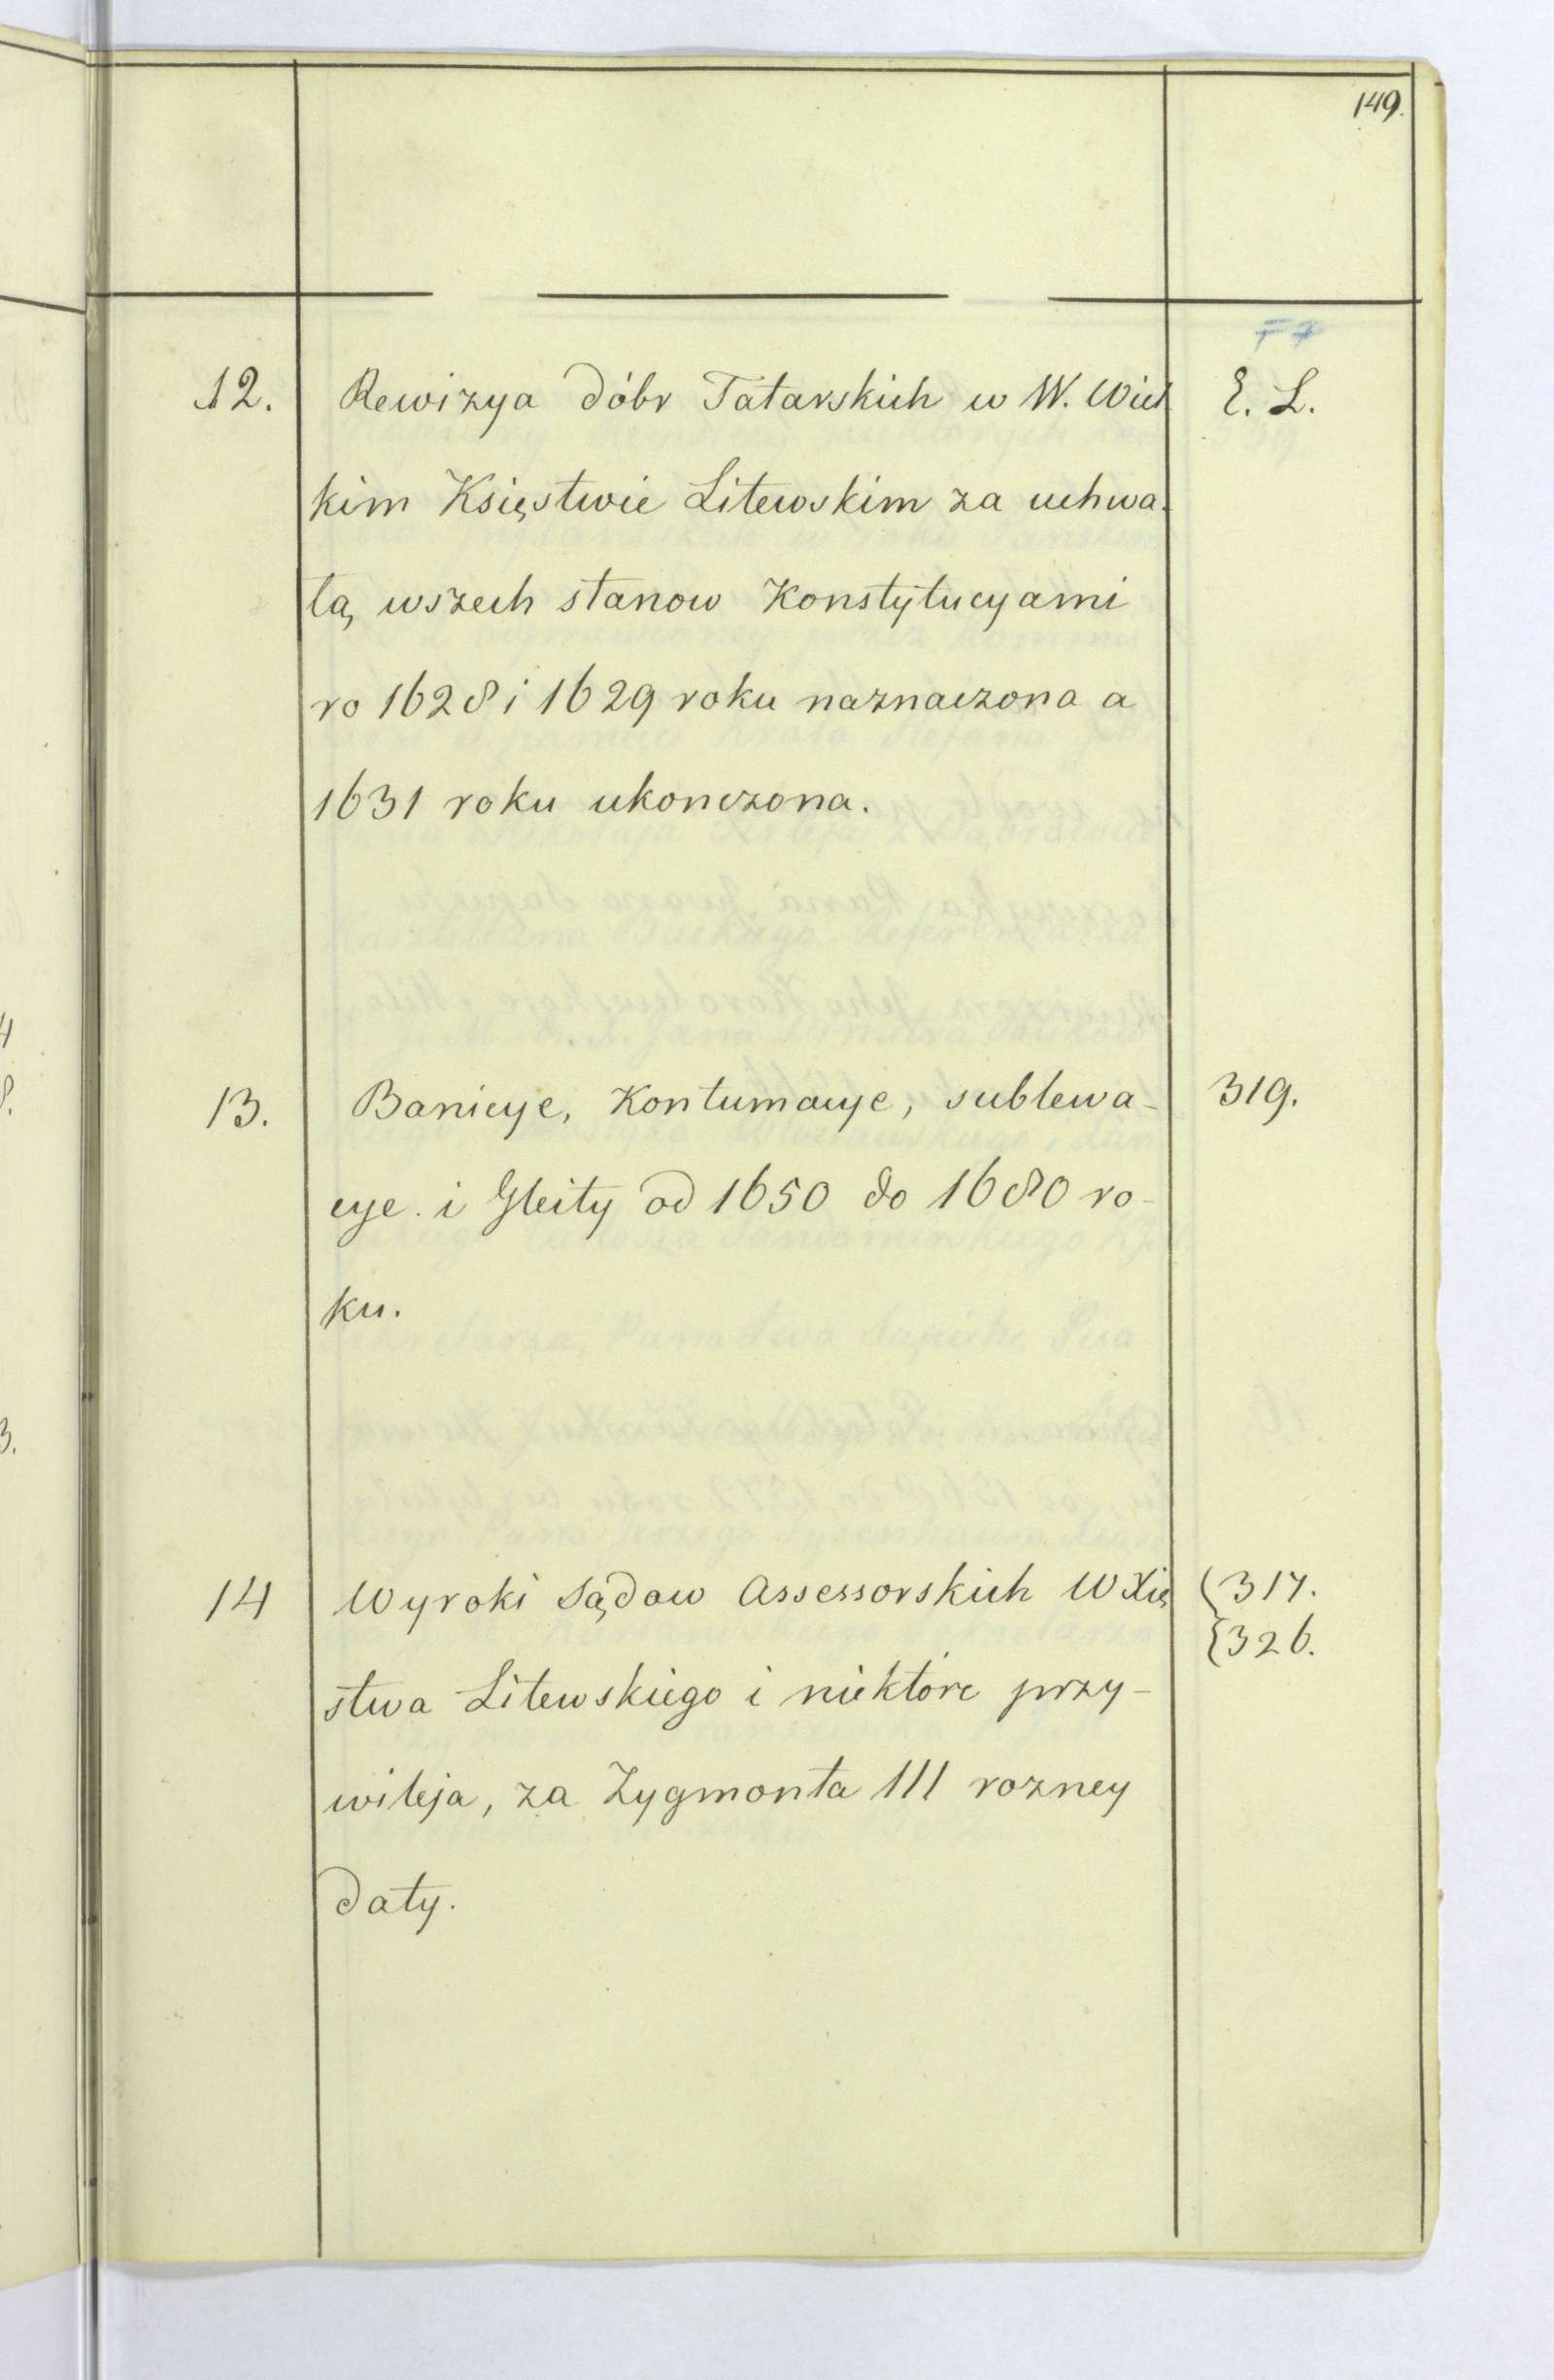 149.
F 7
12. Rewizya dóbr Tatarskich w W. Wiel
E. L.
kim Księstwie Litewskim za uchwa-
łą wszech stanow Konstytucyami
ro 1628 i 1629 roku naznaczona a
1631 roku ukonczona.
13. Banicye, Kontumacye, sublewa-
319.
cye i Gleity od 1650 do 1680 ro-
ku.
14 Wyroki Sądow Assessorskich W Xię
{317.
{326.
stwa Litewskiego i niektóre przy-
wileja, za Zygmonta III rozney
daty.